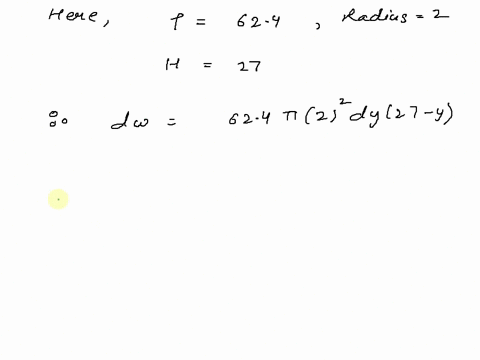 Here, ρ = 62.4 , Radius = 2
H = 27
∴ dω = 62.4 π(2)² dy(27-y)